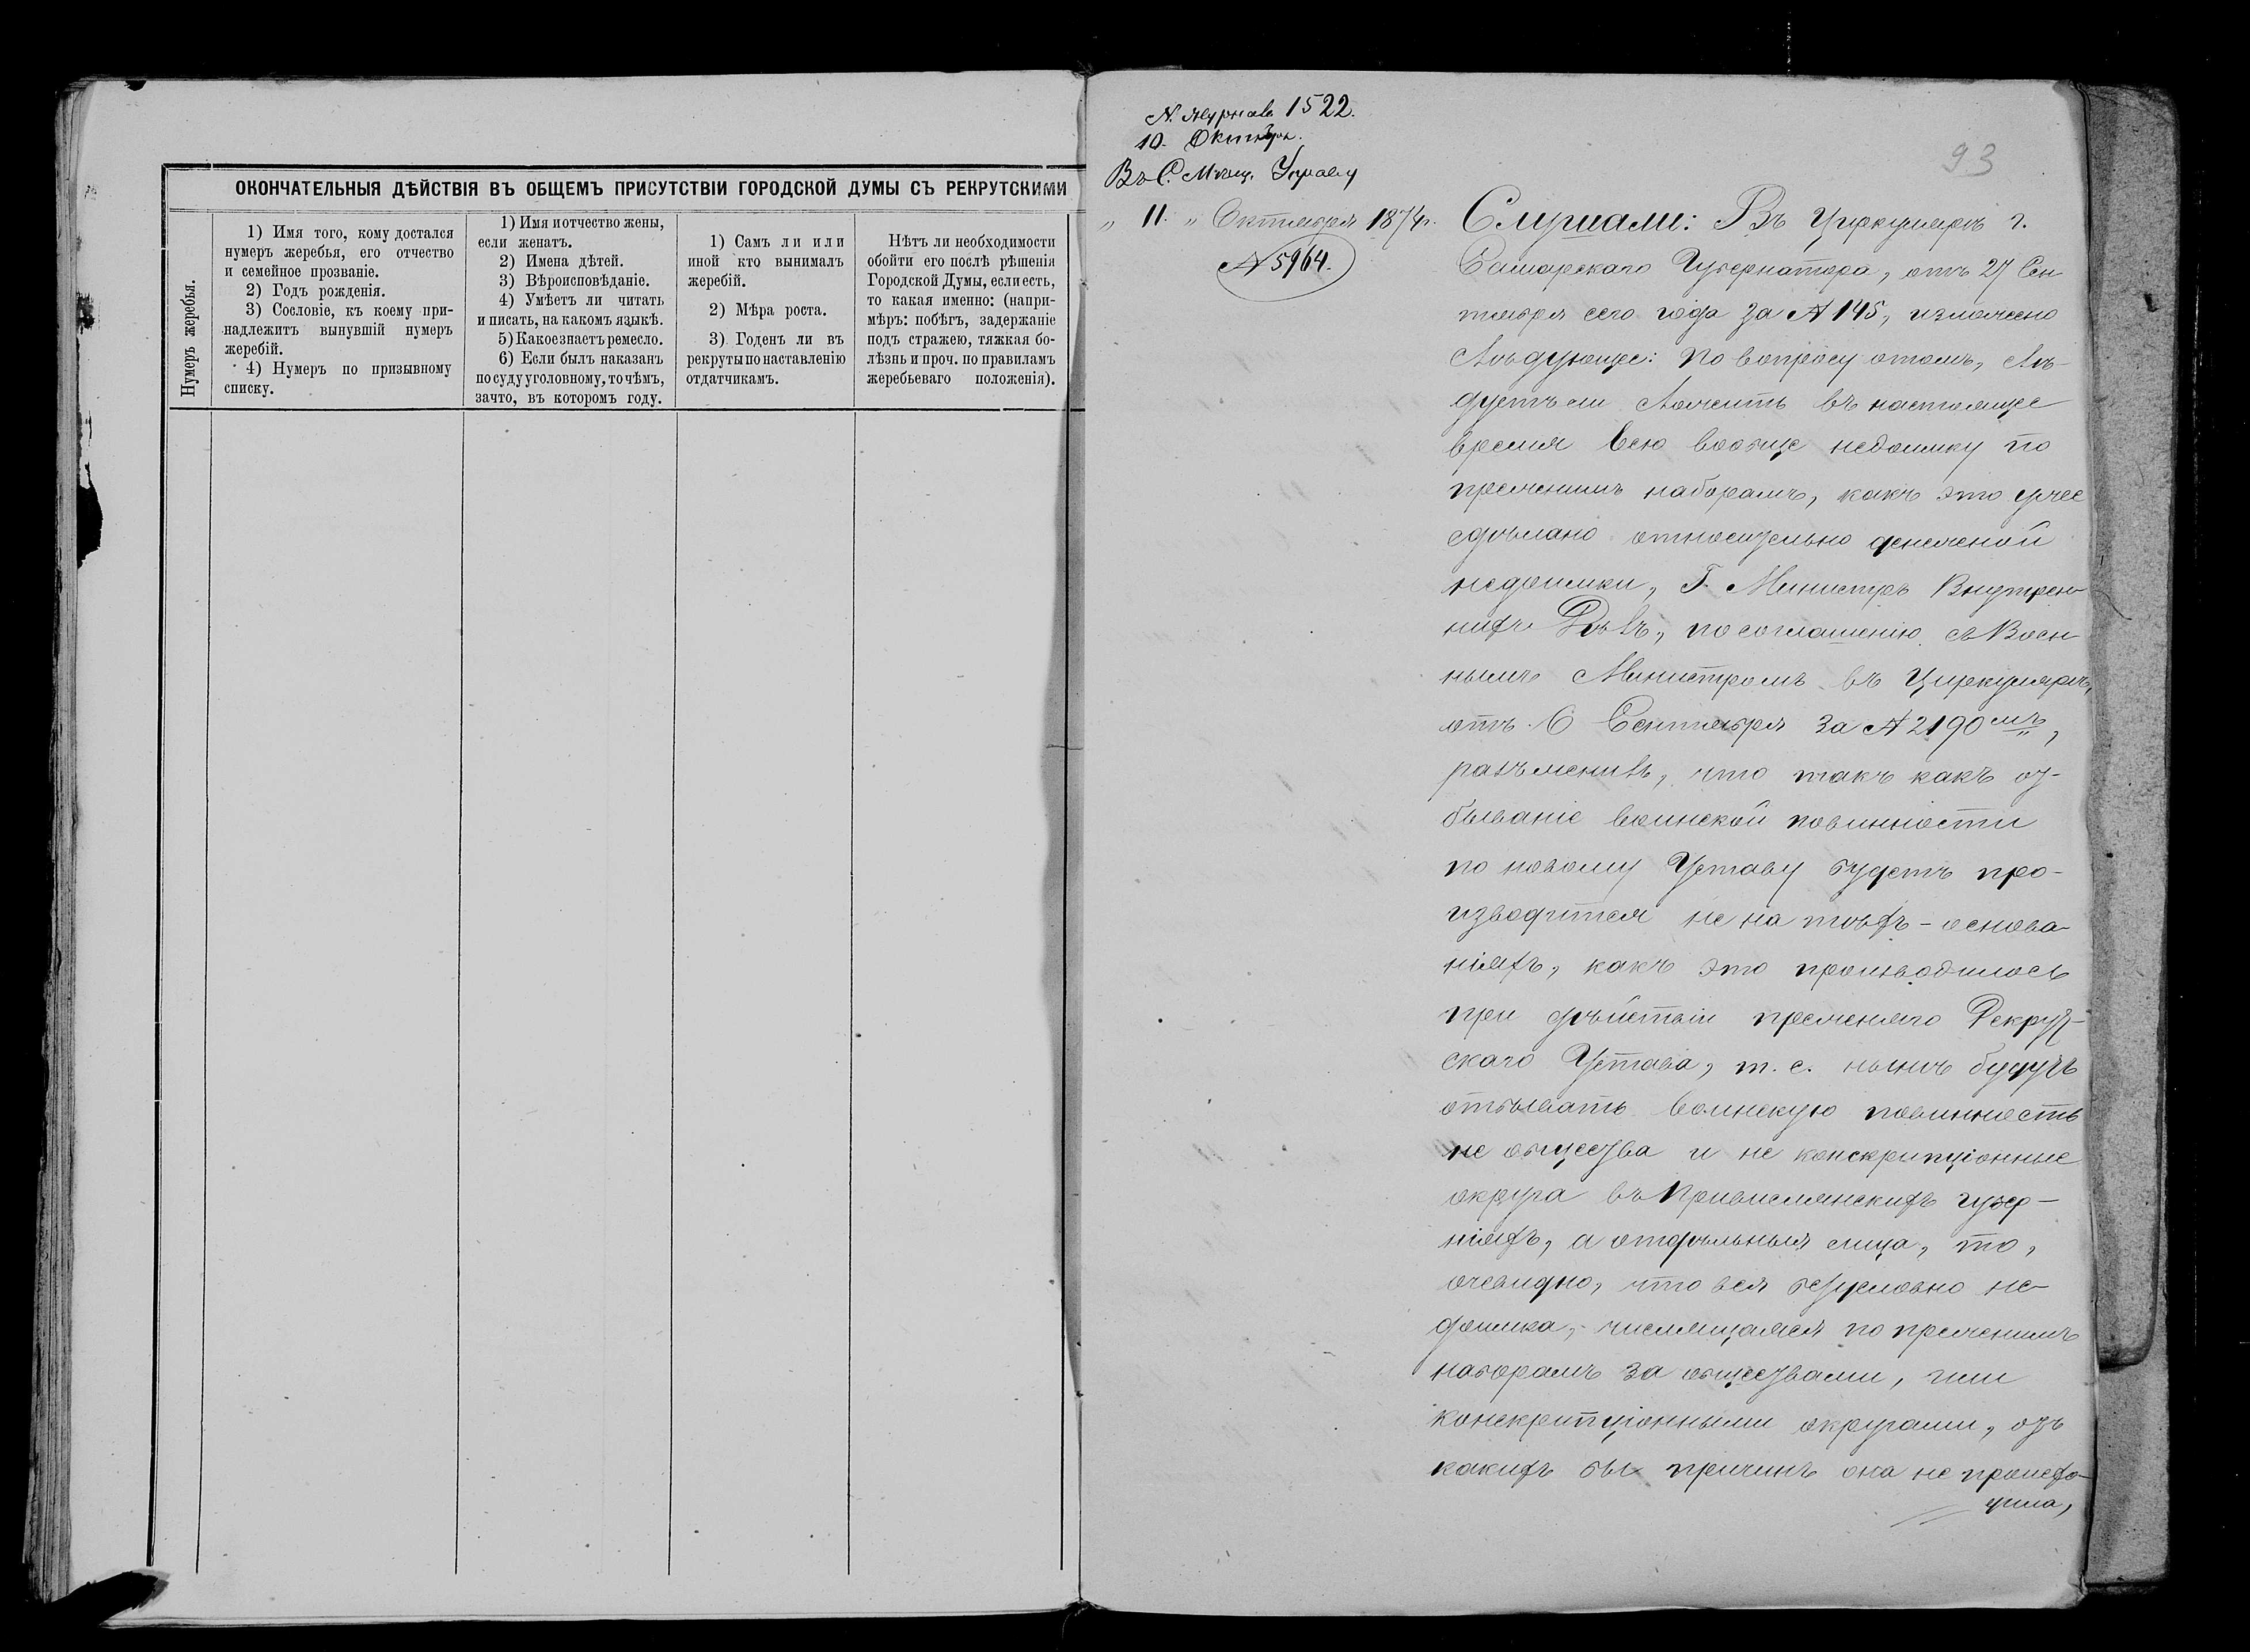 ОКОНЧАТЕЛЬНЫЯ ДѢЙСТВІЯ ВЪ ОБЩЕМЪ ПРИСУТСТВІИ ГОРОДСКОЙ ДУМЫ СЪ РЕКРУТСКИМИ
Нумеръ жеребья.
1) Имя того, кому достался
нумеръ жеребья, его отчество
и семейное прозваніе.
2) Годъ рожденія.
3) Сословіе, къ коему при-
надлежитъ вынувшій нумеръ
жеребій.
4) Нумеръ по призывному
списку.
1) Имя и отчество жены,
если женатъ.
2) Имена дѣтей.
3) Вѣроисповѣданіе.
4) Умѣетъ ли читать
и писать, на какомъ языкѣ.
5) Какое знаетъ ремесло.
6) Если былъ наказанъ
по суду уголовному, то чѣмъ,
за что, въ которомъ году.
1) Самъ ли или
иной кто вынималъ
жеребій.
2) Мѣра роста.
3) Годенъ ли въ
рекруты по наставленію
отдатчикамъ.
Нѣтъ ли необходимости
обойти его послѣ рѣшенія
Городской Думы, если есть,
то какая именно: (напри-
мѣръ: побѣгъ, задержаніе
подъ стражею, тяжкая бо-
лѣзнь и проч. по правиламъ
жеребьеваго положенія).
N. журнала 1522.
10. Октября.
Въ С. Мѣщ. Управу
„ 11. „ Октября 1874 г.
№ 5964.
93
Слушали: Въ Циркулярѣ г.
Самарскаго Губернатора, отъ 27 Сен
тября сего года за № 145, изложено
слѣдующее: По вопросу о томъ, слѣ-
дуетъ ли сложить въ настоящее
время всю вообще недоимку по
прежнимъ наборамъ, какъ это уже
сдѣлано относительно денежной
недоимки, Г. Министръ Внутрен-
нихъ Дѣлъ, по соглашенію съ Воен
нымъ Министромъ въ Циркулярѣ,
отъ 6 Сентября за № 2190мъ,
разъяснилъ, что такъ какъ от-
бываніе воинской повинности
по новому Уставу будетъ про-
изводится не на тѣхъ-основа-
ніяхъ, какъ это производилось
при дѣйствіи прежняго Рекрут-
скаго Устава, т. е. нынѣ будутъ
отбывать воинскую повинность
не общества и не конскрипціонные
округа въ Привислянскихъ губер-
ніяхъ, а отдѣльныя лица, то,
очевидно, что вся безусловно не-
доимка, числящаяся по прежнимъ
наборамъ за обществами, или
конскрипціонными округами, отъ
какихъ бы причинъ она не происхо-
дила,